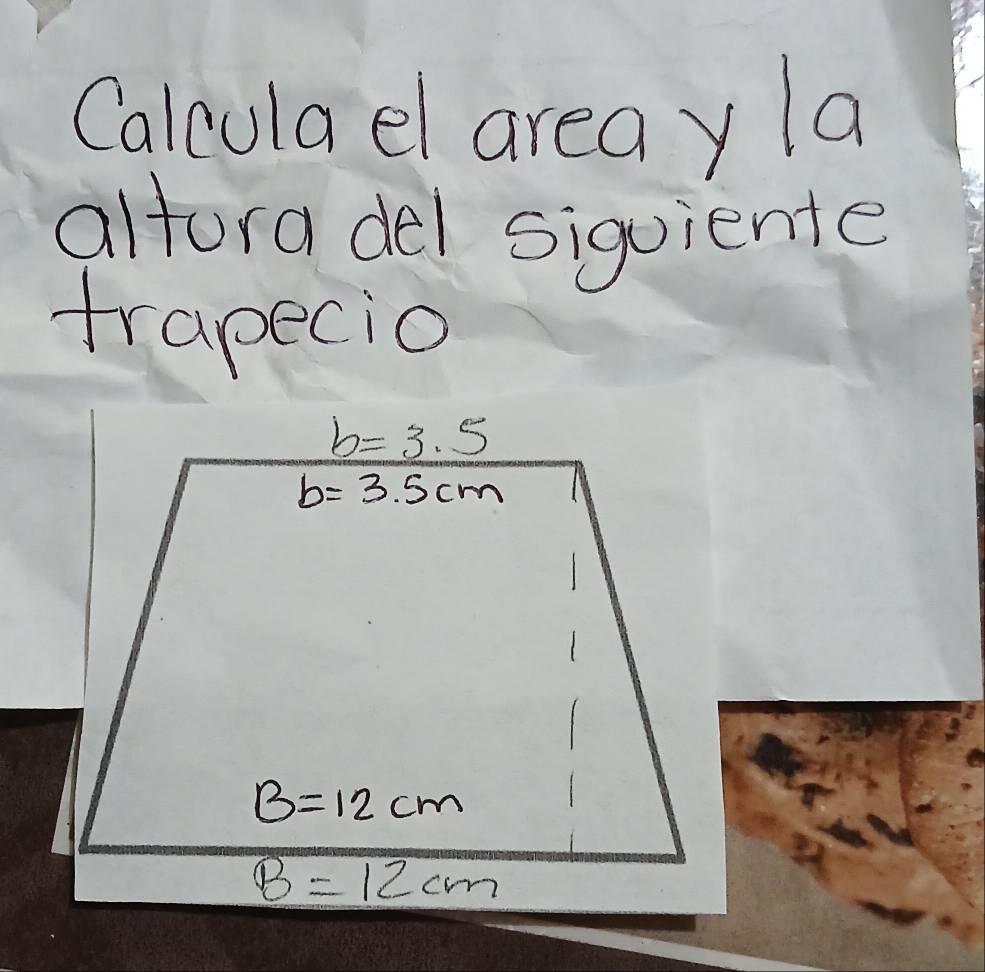 Calcula el area y la
altura del siguiente
trapecio
b=3.5
b=3.5cm
B=12 cm
B=12cm